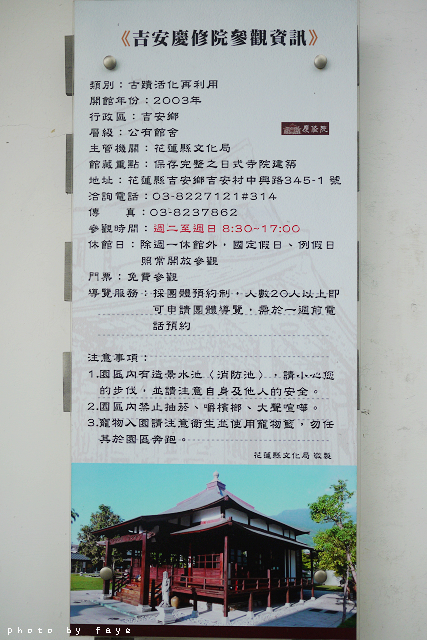 《吉安慶修院參觀資訊》
類別：古蹟活化再利用
開館年份：2003年
行政區：吉安鄉
層級：公有館舍
慶修院
主管機關：花蓮縣文化局
館藏重點：保存完整之日式寺院建築
地址：花蓮縣吉安鄉吉安村中興路345-1 號
洽詢電話：03-8227121#314
傳　　真：03-8237862
參觀時間：週二至週日 8:30~17:00
休館日：除週一休館外，國定假日、例假日
照常開放參觀
門票：免費參觀
導覽服務：採團體預約制，人數20人以上即
可申請團體導覽，需於一週前電
話預約
注意事項：
1.園區內有造景水池〈消防池〉，請小心您
的步伐，並請注意自身及他人的安全。
2.園區內禁止抽菸、嚼檳榔、大聲喧嘩。
3.寵物入園請注意衛生並使用寵物籃，勿任
其於園區奔跑。
花蓮縣文化局 徵製
photo by faye